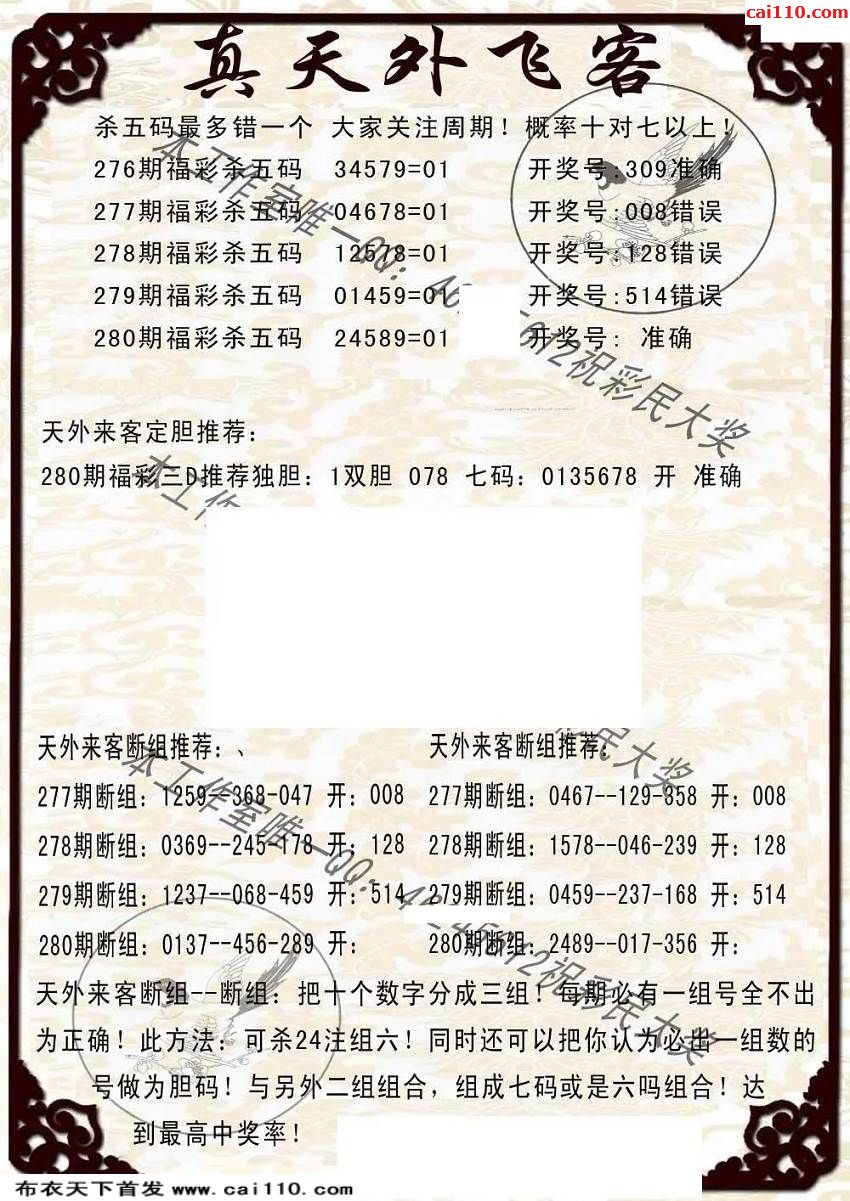 cai110.com
真天外飞客
杀五码最多错一个 大家关注周期！概率十对七以上！
276期福彩杀五码 34579=01 开奖号:309准确
277期福彩杀五码 04678=01 开奖号:008错误
278期福彩杀五码 12578=01 开奖号:128错误
279期福彩杀五码 01459=01 开奖号:514错误
280期福彩杀五码 24589=01 开奖号: 准确
天外来客定胆推荐：
280期福彩三D推荐独胆：1双胆 078 七码：0135678 开 准确
天外来客断组推荐：、 天外来客断组推荐：
277期断组：1259--368-047 开：008 277期断组：0467--129-358 开：008
278期断组：0369--245-178 开：128 278期断组：1578--046-239 开：128
279期断组：1237--068-459 开：514 279期断组：0459--237-168 开：514
280期断组：0137--456-289 开： 280期断组：2489--017-356 开：
天外来客断组--断组：把十个数字分成三组！每期必有一组号全不出
为正确！此方法：可杀24注组六！同时还可以把你认为必出一组数的
号做为胆码！与另外二组组合，组成七码或是六吗组合！达
到最高中奖率！
布衣天下首发 www.cai110.com